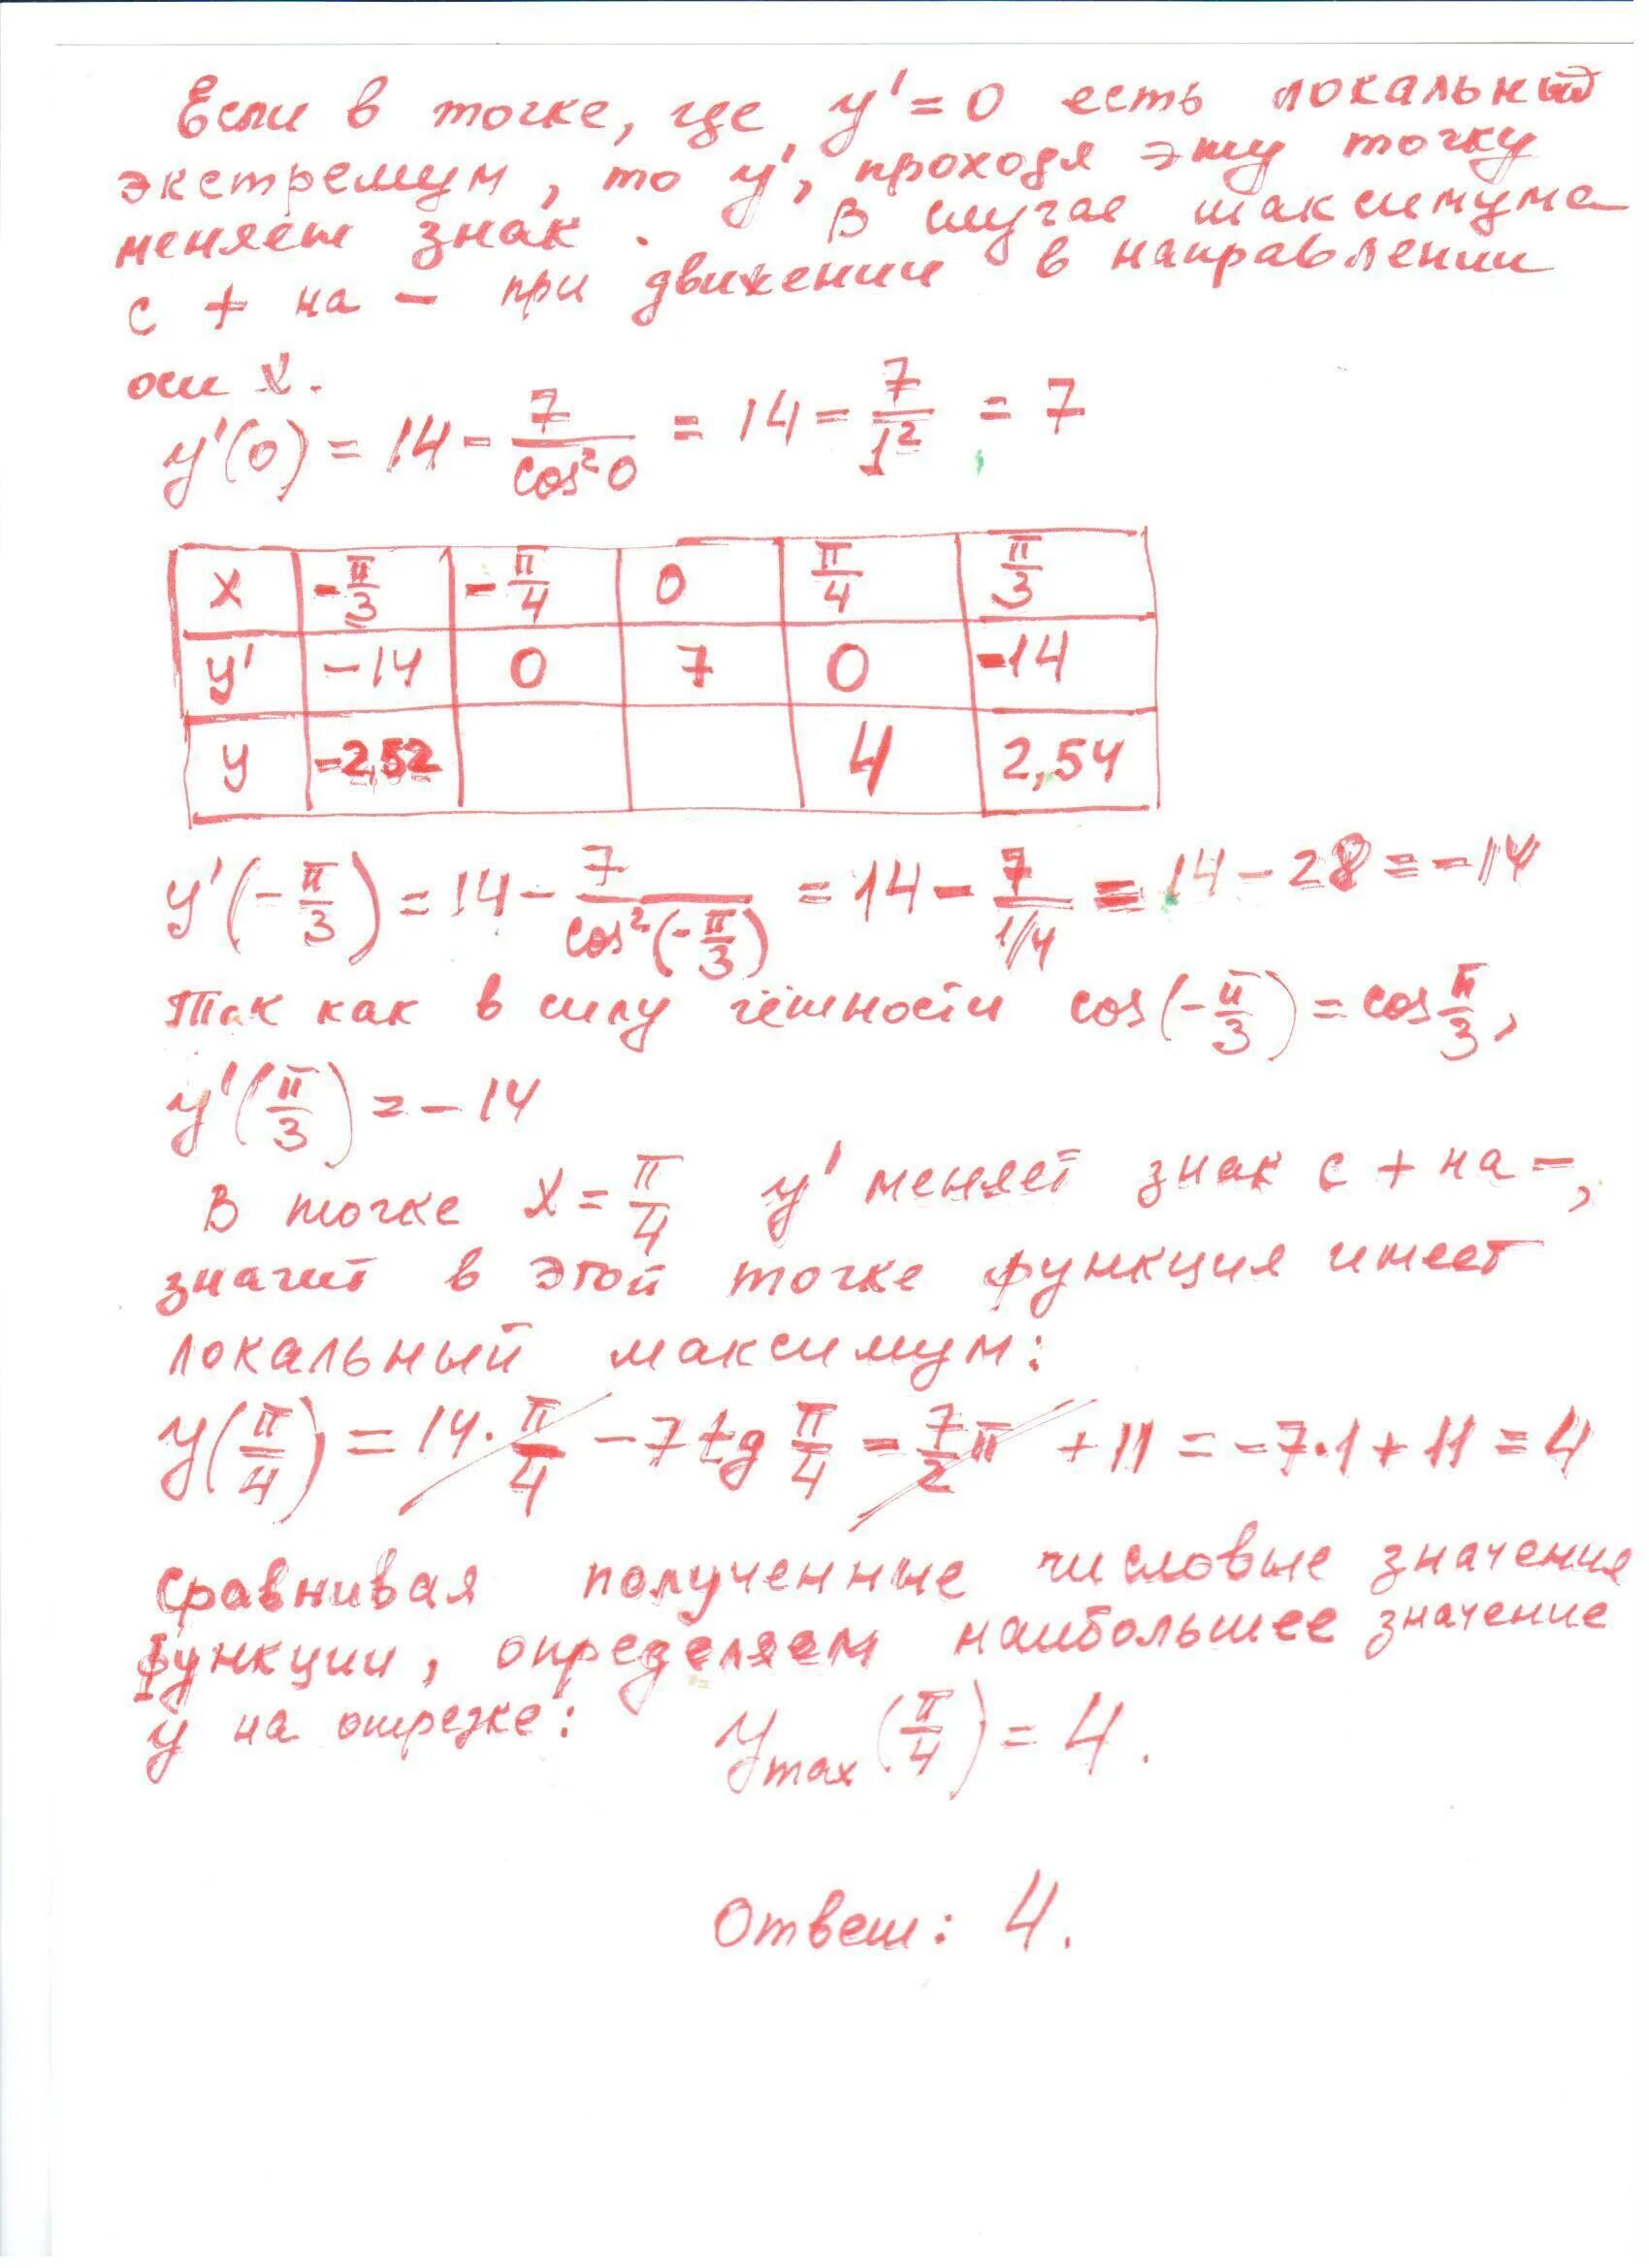 Если в точке, где y' = 0 есть локальный
экстремум, то y', проходя эту точку
меняет знак. В случае максимума
с + на – при движении в направлении
оси x.
y'(0) = 14 - 7/cos²0 = 14 - 7/1² = 7
x | -π/3 | -π/4 | 0 | π/4 | π/3
y' | -14 | 0 | 7 | 0 | -14
y | -2,52 | | | 4 | 2,54
y'(-π/3) = 14 - 7/cos²(-π/3) = 14 - 7/1/4 = 14 - 28 = -14
Так как в силу чётности cos(-π/3) = cos π/3,
y'(π/3) = -14
В точке x = π/4 y' меняет знак с + на –,
значит в этой точке функция имеет
локальный максимум:
y(π/4) = 14·π/4 - 7 tg π/4 - 7/2 π + 11 = -7·1 + 11 = 4
Сравнивая полученные числовые значения
функции, определяем наибольшее значение
y на отрезке: y max (π/4) = 4.
Ответ: 4.